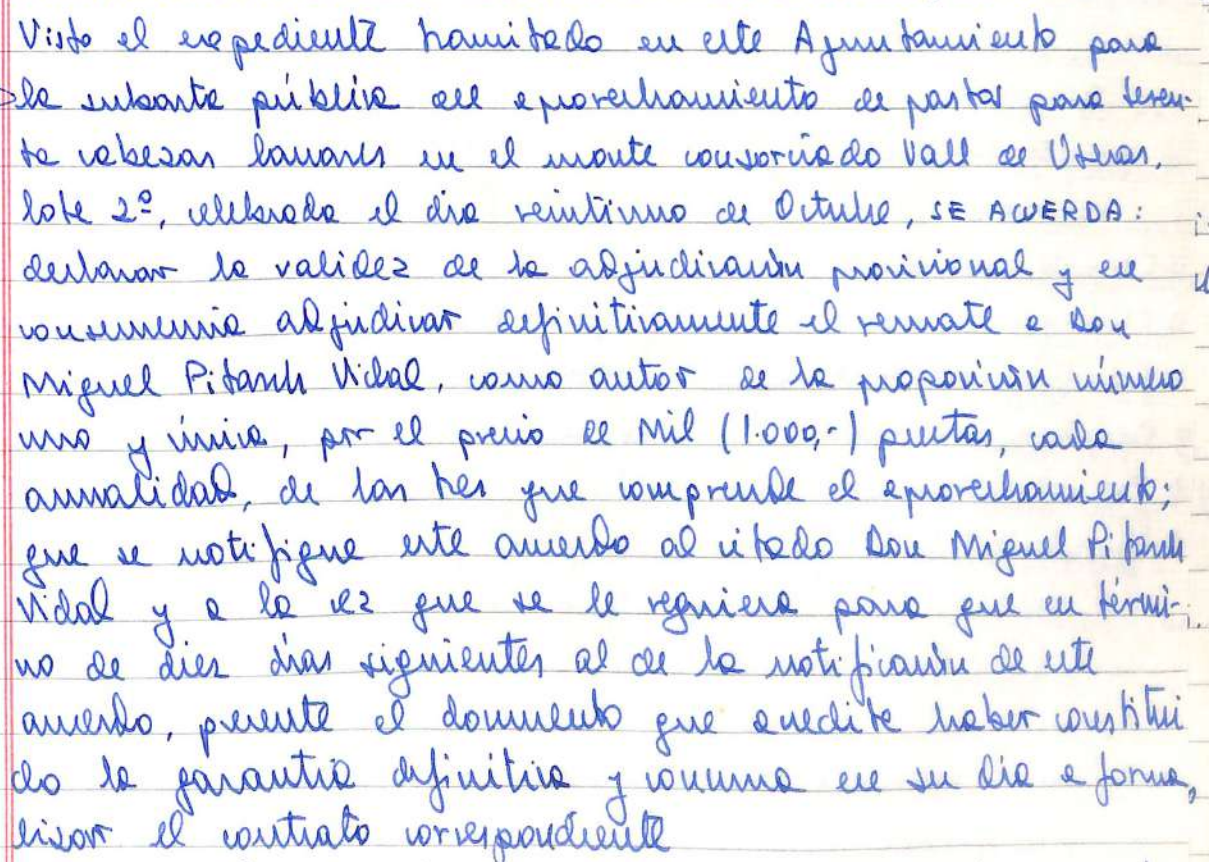 Visto el expediente tramitado en este Ayuntamiento para
la subasta pública del aprovechamiento de pastos para seten-
ta cabezas lanares en el monte consorciado Vall de Useras,
lote 2º, celebrada el día veintiuno de Octubre, SE ACUERDA:
declarar la validez de la adjudicación provisional y en
consecuencia adjudicar definitivamente el remate a Don
Miguel Pitarch Vidal, como autor de la proposición número
uno y única, por el precio de Mil (1.000,-) pesetas, cada
anualidad, de las tres que comprende el aprovechamiento;
que se notifique este acuerdo al citado Don Miguel Pitarch
Vidal y a la vez que se le requiera para que en térmi-
no de diez días siguientes al de la notificación de este
acuerdo, presente el documento que acredite haber constitui
do la garantía definitiva y concurra en su día a forma,
lizar el contrato correspondiente